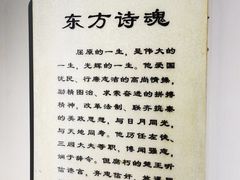 东方诗魂
屈原的一生，是伟大的
一生，光辉的一生。他爱国
忧民、行廉志洁的高尚情操，
励精图治、求索奋进的拼搏
精神，改革法制、联齐抗秦
的美政思想，与日月同光，
与天地同寿。他历任左徒、
三闾大夫等职，博闻强志，
娴于辞令。但腐朽的楚王听
信谗言，